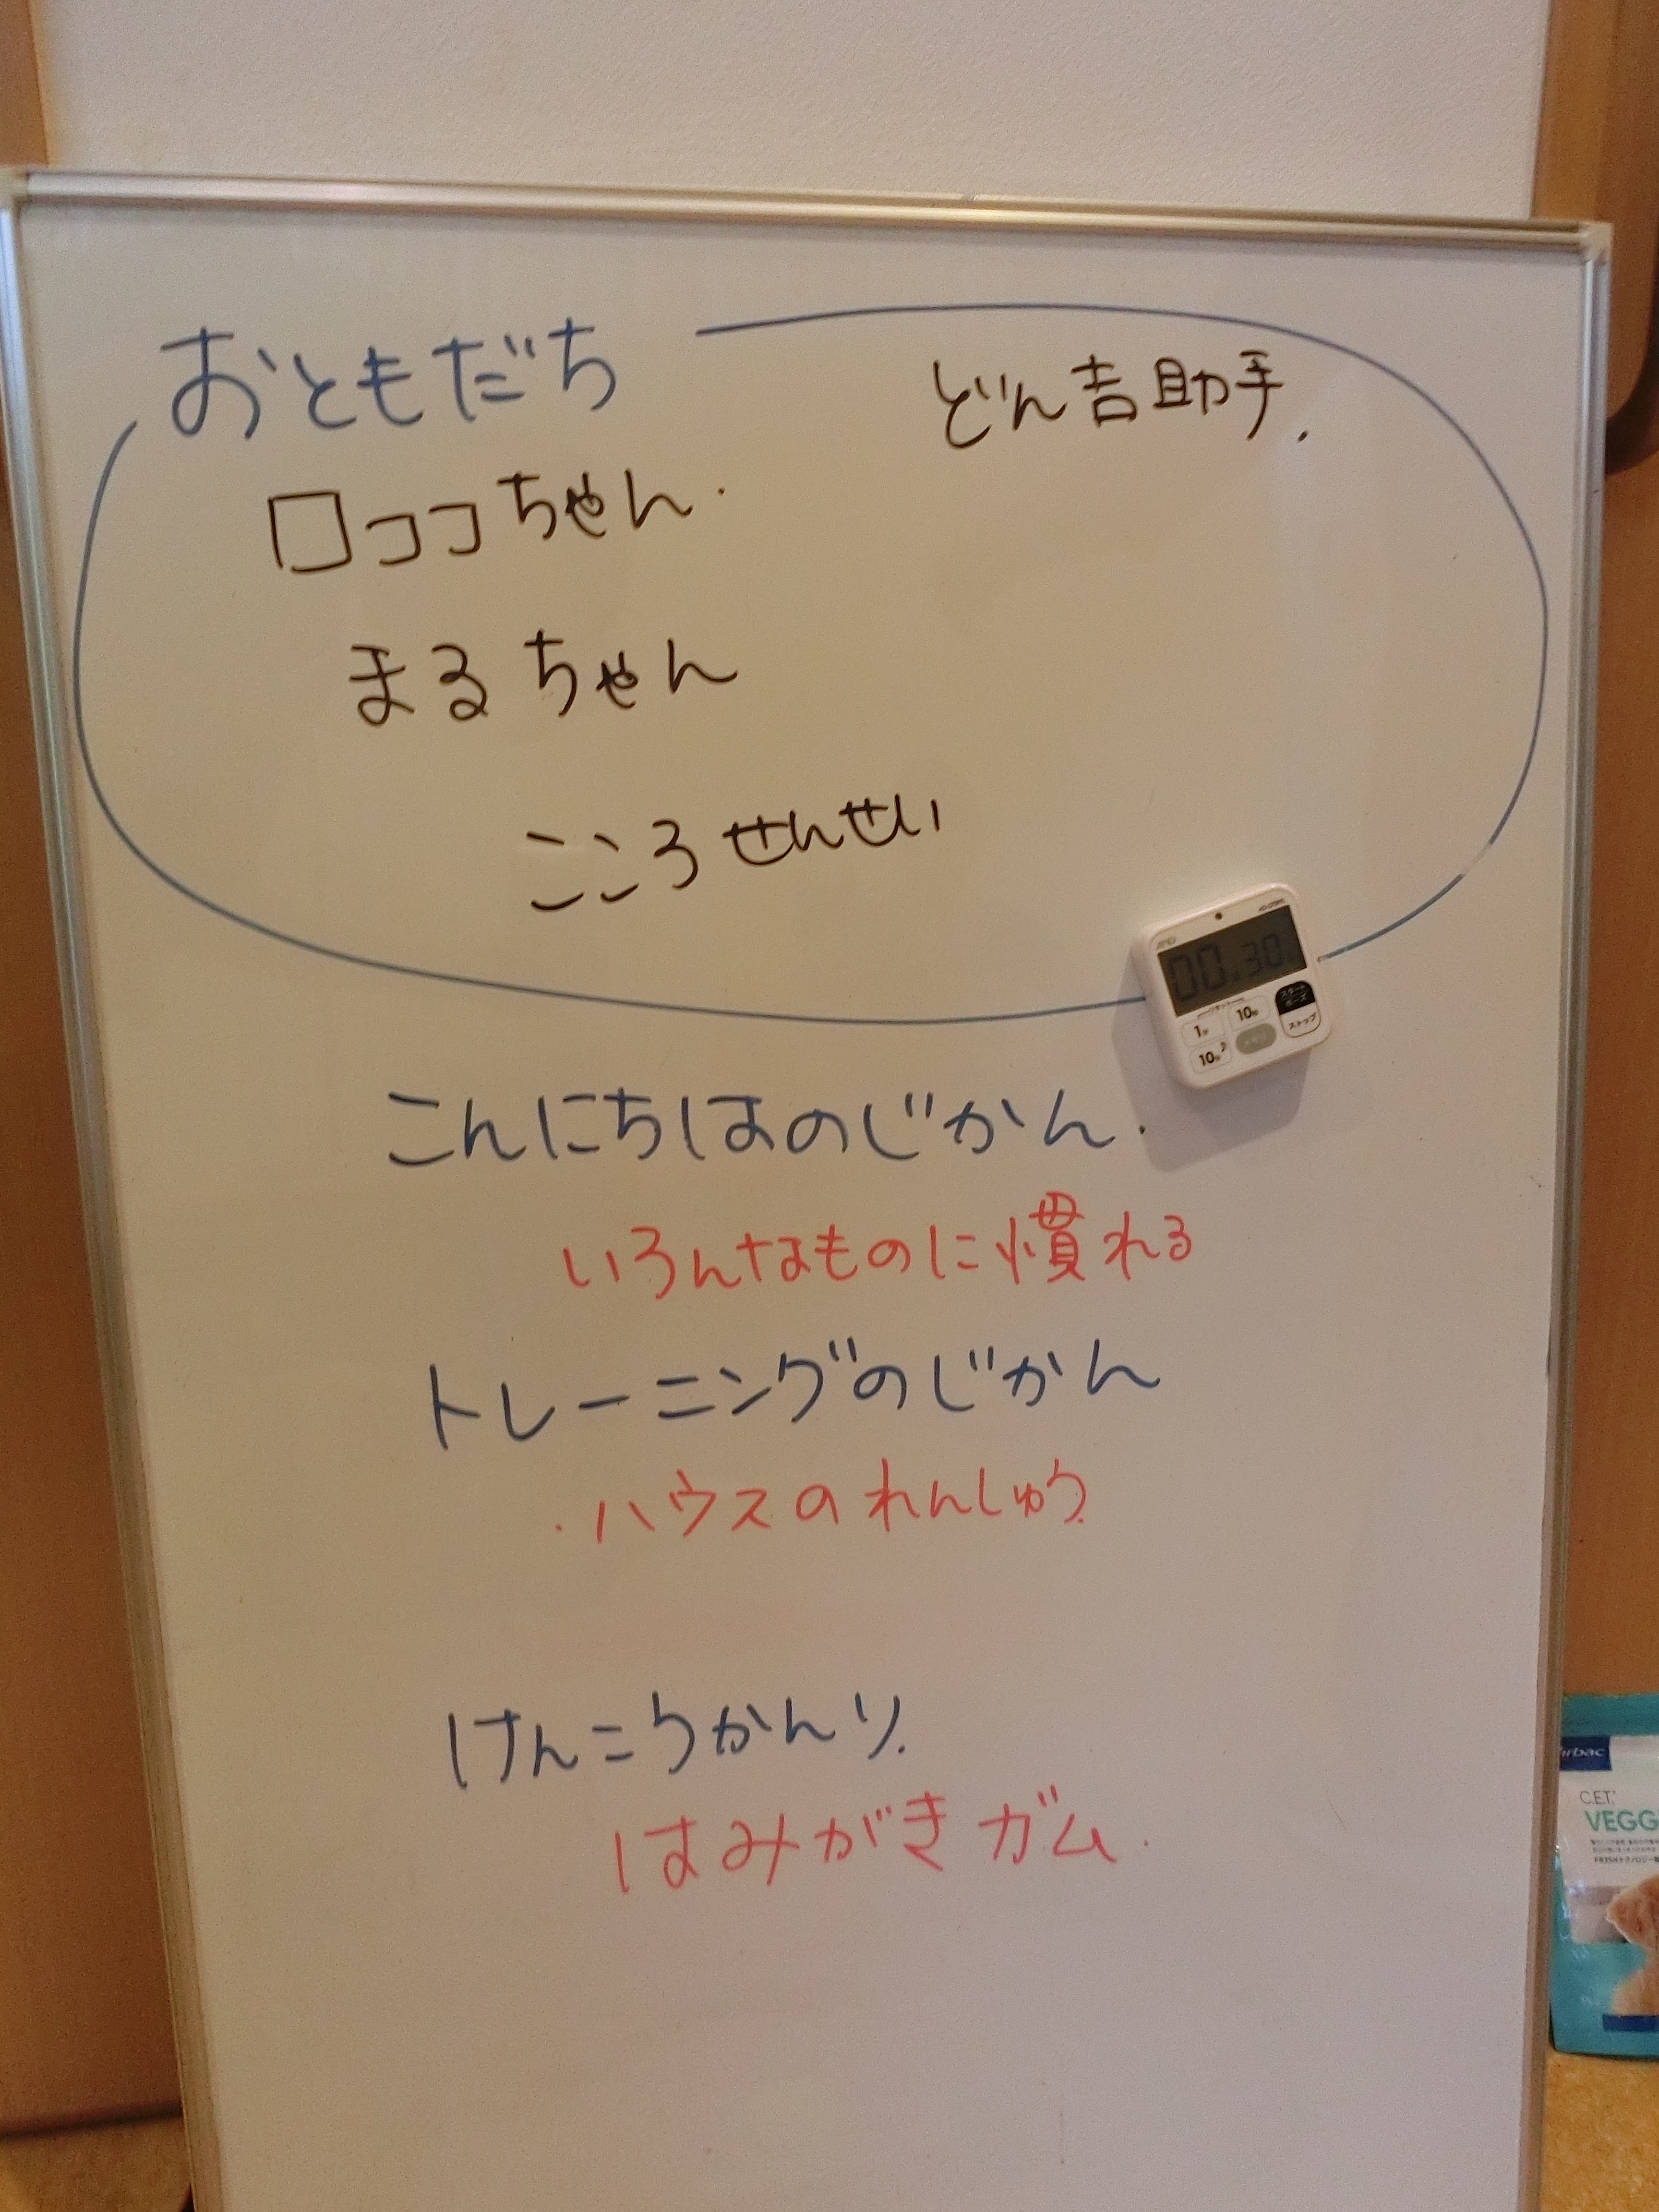 おともだち
どん吉助手.
ロココちゃん.
まるちゃん
こころせんせい
00.30
1分
10秒
スタート
ストップ
こんにちはのじかん.
いろんなものに慣れる
トレーニングのじかん
・ハウスのれんしゅう.
けんこうかんり.
はみがきガム.
C.E.T.
VEGG